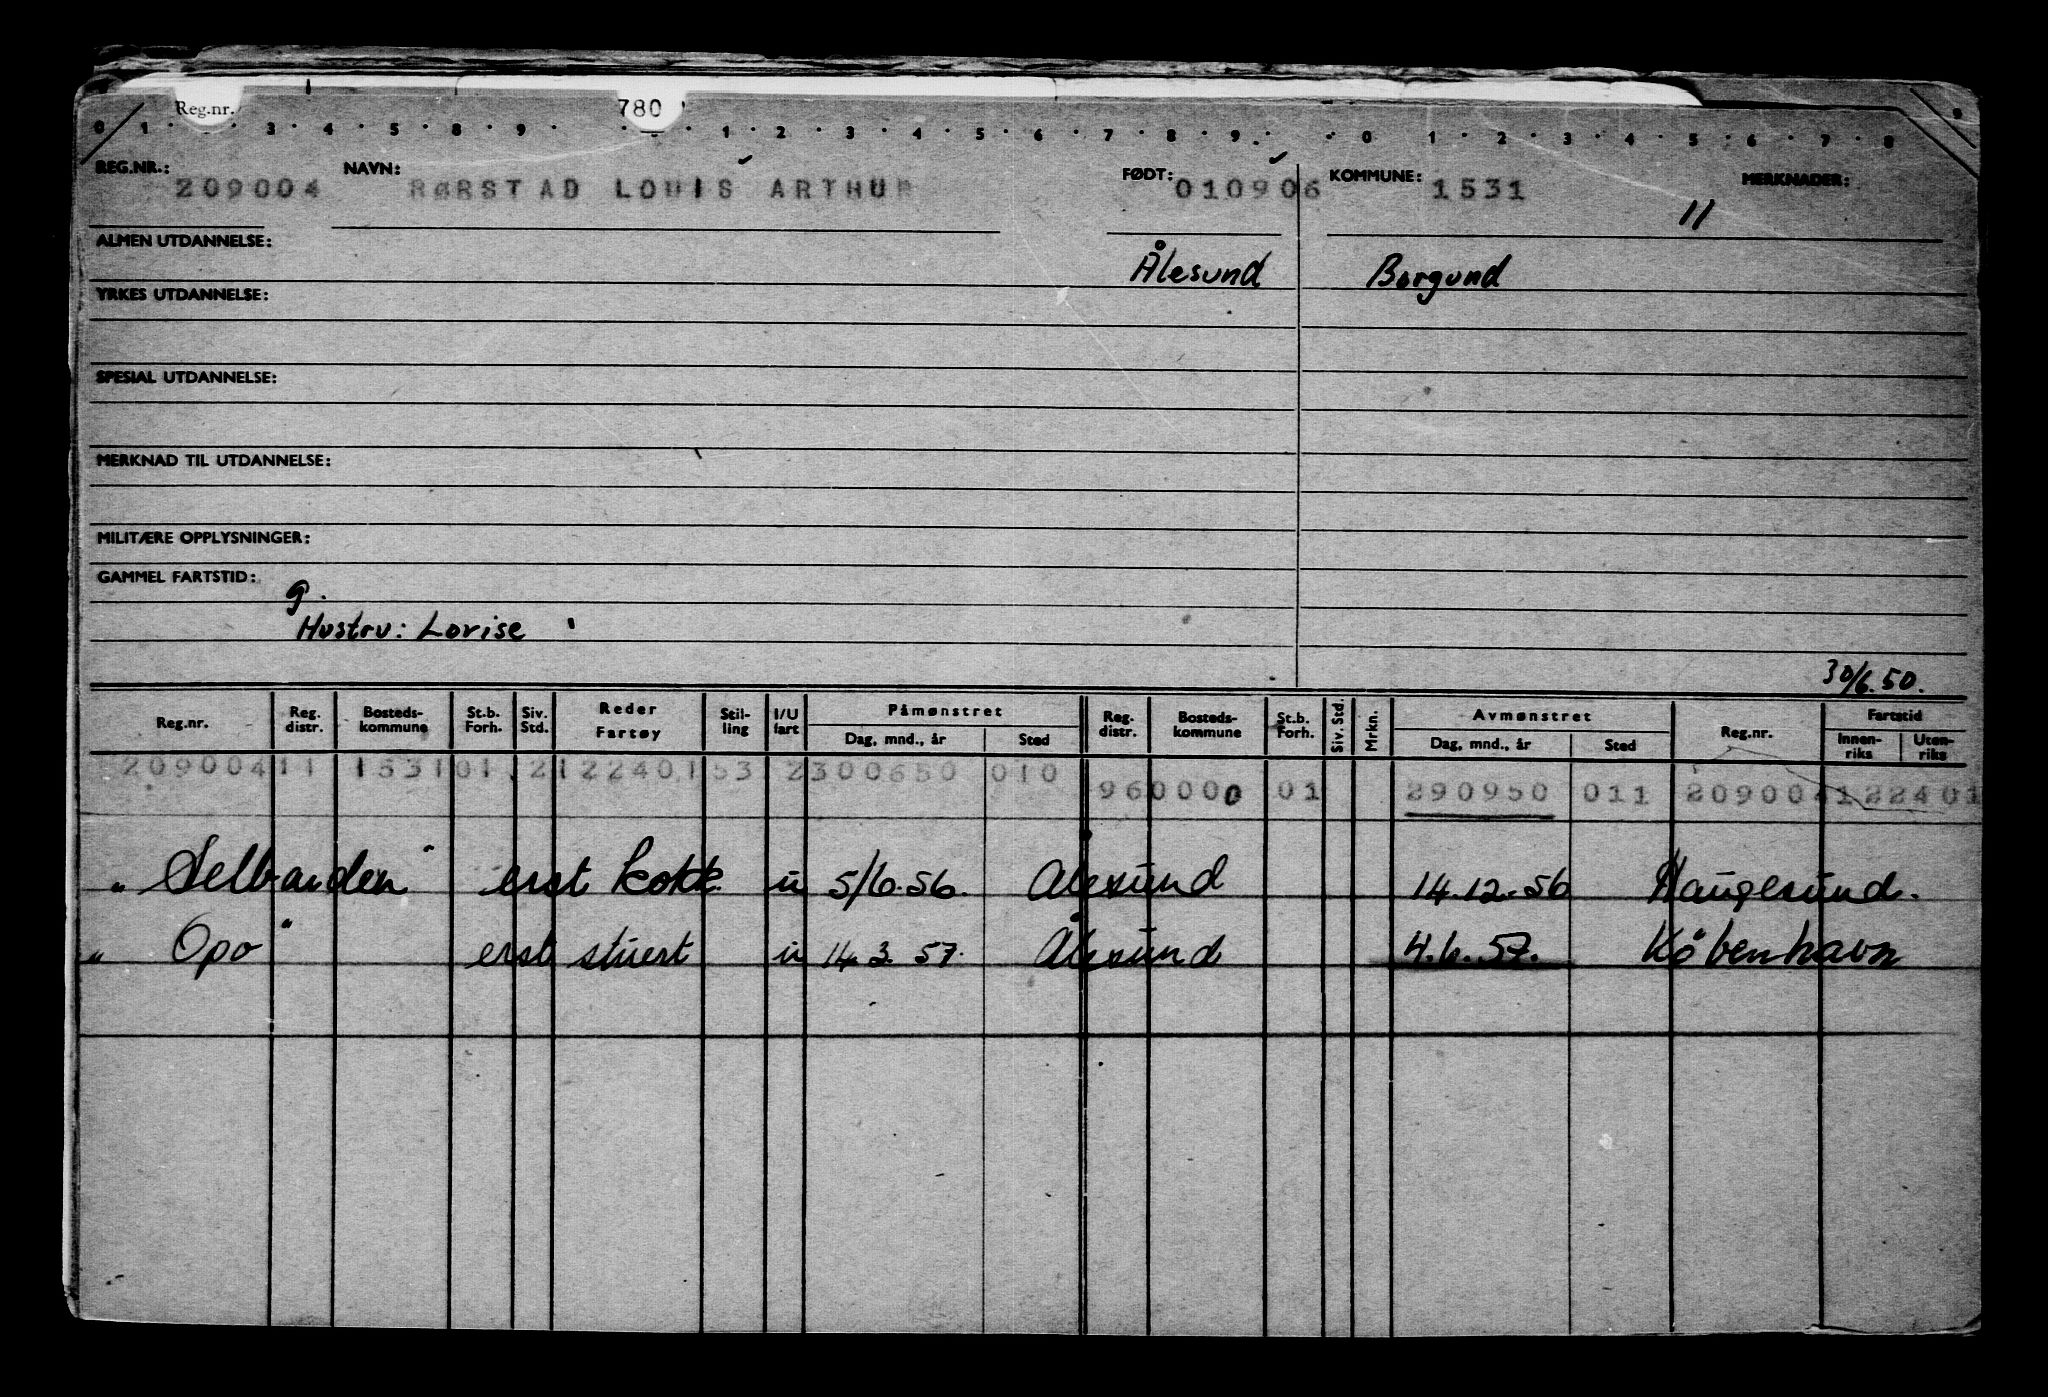 Reg.nr. 780
0 1 · · 3 · 4 · 5 · 8 · 9 · · · 1 · 2 · 3 · 4 · 5 · 6 · 7 · 8 · 9 · · 0 · 1 · 2 · 3 · 4 · 5 · 6 · 7 · 8 9
REG.NR.: 209004 NAVN: RØRSTAD LOUIS ARTHUR FØDT: 010906 KOMMUNE: 1531 MERKNADER:
11
ALMEN UTDANNELSE: Ålesund Borgund
YRKES UTDANNELSE:
SPESIAL UTDANNELSE:
MERKNAD TIL UTDANNELSE:
MILITÆRE OPPLYSNINGER:
GAMMEL FARTSTID:
g.
Hustru: Lovise
30/6.50.
Reg.nr. Reg. distr. Bosteds-kommune St.b. Forh. Siv. Std. Reder Fartøy Stil-ling I/U fart Påmønstret Dag, mnd., år Sted Reg. distr. Bosteds-kommune St.b. Forh. Siv. Std. Mrkn. Avmønstret Dag, mnd., år Sted Reg.nr. Fartstid Innen-riks Uten-riks
209004 11 1531 01 2 122401 53 2 300650 010
960000 01 290950 011 209004 122401
" Selbarden " erst kokk u 5/6.56. Ålesund 14.12.56 Haugesund.
" Opo " erst stuert u 14.3.57. Ålesund 4.6.57. København